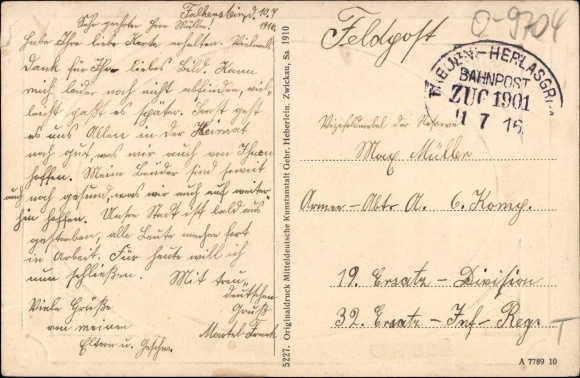 Falkenstein, d. 10.7.
1916.
Sehr geehrter Herr Müller!
habe Ihre liebe Karte erhalten. Vielmals
Dank für Ihr liebes Bild. Kann
mich leider noch nicht abfinden, viel-
leicht paßt es später. Sonst geht
es uns Allen in der Heimat
noch gut, was wir auch von Ihnen
hoffen. Meine Brüder sind soweit
auch noch gesund, was wir auch auf weiter-
hin hoffen. Unsre Stadt ist bald aus
gestorben, alle Leute machen fort
in Arbeit. Für heute will ich
nun schließen. Mit treu
deutschem
Gruß
Viele Grüße
von meinen
Eltern u. Geschw.
Martel
5227. Originaldruck Mitteldeutsche Kunstanstalt Gebr. Heberlein, Zwickau, Sa. 1910
O-9704
Feldpost
HERLASGR
BAHNPOST
ZUG 1901
11 7 16
Vizefeldwebel der Reserve
Max Müller
Armee-Abt. A. 6. Komp.
19. Ersatz-Division
32. Ersatz-Inf. Reg.
T
A 7789 10